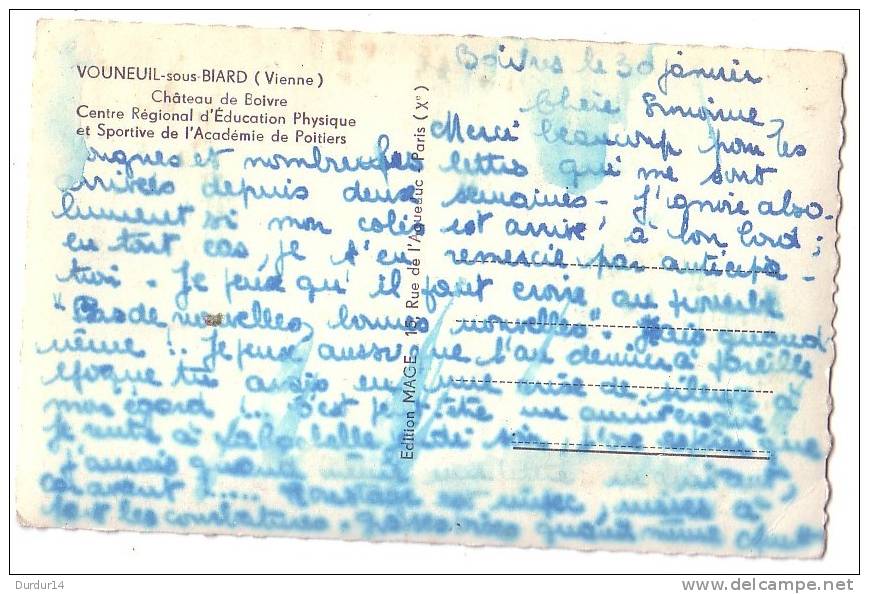 VOUNEUIL-sous-BIARD (Vienne)
Château de Boivre
Centre Régional d'Éducation Physique
et Sportive de l'Académie de Poitiers
Edition MAGE - 15, Rue de l'Aqueduc - Paris (Xe)
Boivres le 30 janvier
Chère Simone,
Merci beaucoup pour tes
longues et nombreuses lettres qui me sont
arrivées depuis deux semaines - J'ignore abso-
lument si mon colis est arrivé à bon bord ;
en tout cas, je t'en remercie par anticipa-
tion. Je pense qu'il faut croire au proverbe
"Pas de nouvelles, bonnes nouvelles". Mais quand
même !.. Je pense aussi que l'an dernier à pareille
époque tu avais eu une crise de silence à
mon égard !... c'est peut-être un anniversaire
Je suis à La Rochelle que
quand
avant !....
tout les courbatures. quand même
Durdur14
www.delcampe.net